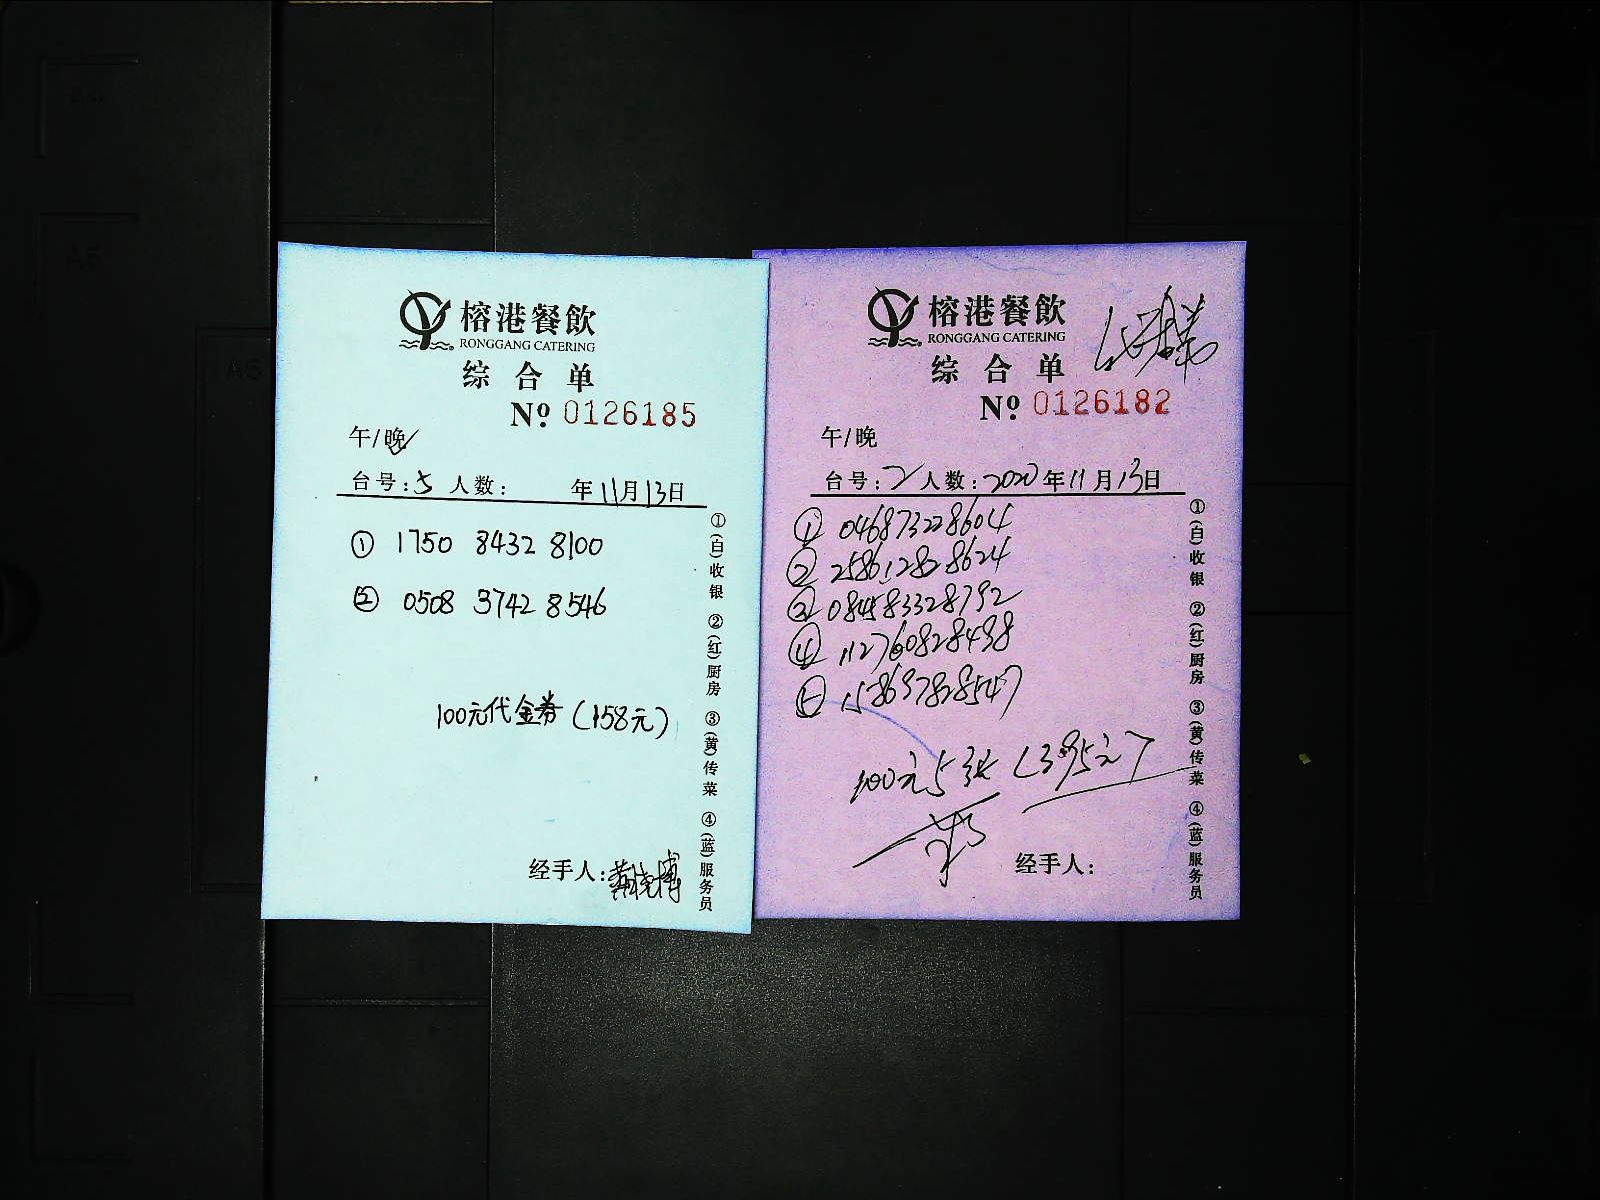 榕港餐飲
RONGGANG CATERING
综合单
Nº 0126185
午/晚
台号:5 人数: 年11月13日
① 1750 8432 8100
② 0508 3742 8546
100元代金券(158元)
经手人:黄晓博
①(白)收银 ②(红)厨房 ③(黄)传菜 ④(蓝)服务员
榕港餐飲
RONGGANG CATERING
综合单
Nº 0126182
午/晚
台号:2 人数:2020年11月13日
① 046873228604
② 258612828624
③ 084583328792
④ 112760828498
⑤ 158697828547
100元5张(395元)
经手人:
①(白)收银 ②(红)厨房 ③(黄)传菜 ④(蓝)服务员